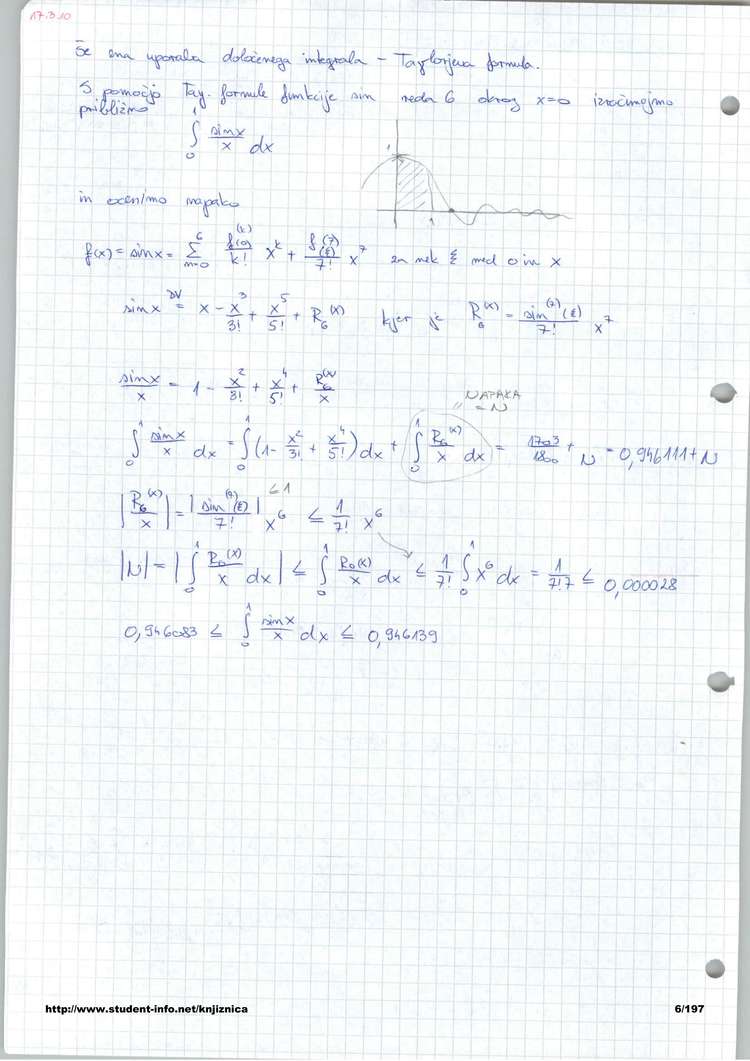 17.3.10
Še ena uporaba določenega integrala – Taylorjeva formula.
S pomočjo Tay. formule funkcije sin reda 6 okrog x=0 izračunajmo
približno
∫₀¹ sinx/x dx
1
1
in ocenimo napako
f(x) = sinx = Σ_{n=0}^{6} f^(k)(0)/k! x^k + f^(7)(ξ)/7! x^7 za nek ξ med 0 in x
sinx = x - x³/3! + x⁵/5! + R₆(x) kjer je R₆(x) = sin^(7)(ξ)/7! x^7
sinx/x = 1 - x²/3! + x⁴/5! + R₆(x)/x
NAPAKA
= N
∫₀¹ sinx/x dx = ∫₀¹ (1 - x²/3! + x⁴/5!) dx + ∫₀¹ R₆(x)/x dx = 1703/1800 + N = 0,946111 + N
|R₆(x)/x| = |sin^(7)(ξ)/7!| x⁶ ≤ 1/7! x⁶
≤ 1
|N| = |∫₀¹ R₆(x)/x dx| ≤ ∫₀¹ R₆(x)/x dx ≤ 1/7! ∫₀¹ x⁶ dx = 1/7!7 ≤ 0,000028
0,946083 ≤ ∫₀¹ sinx/x dx ≤ 0,946139
http://www.student-info.net/knjiznica 6/197